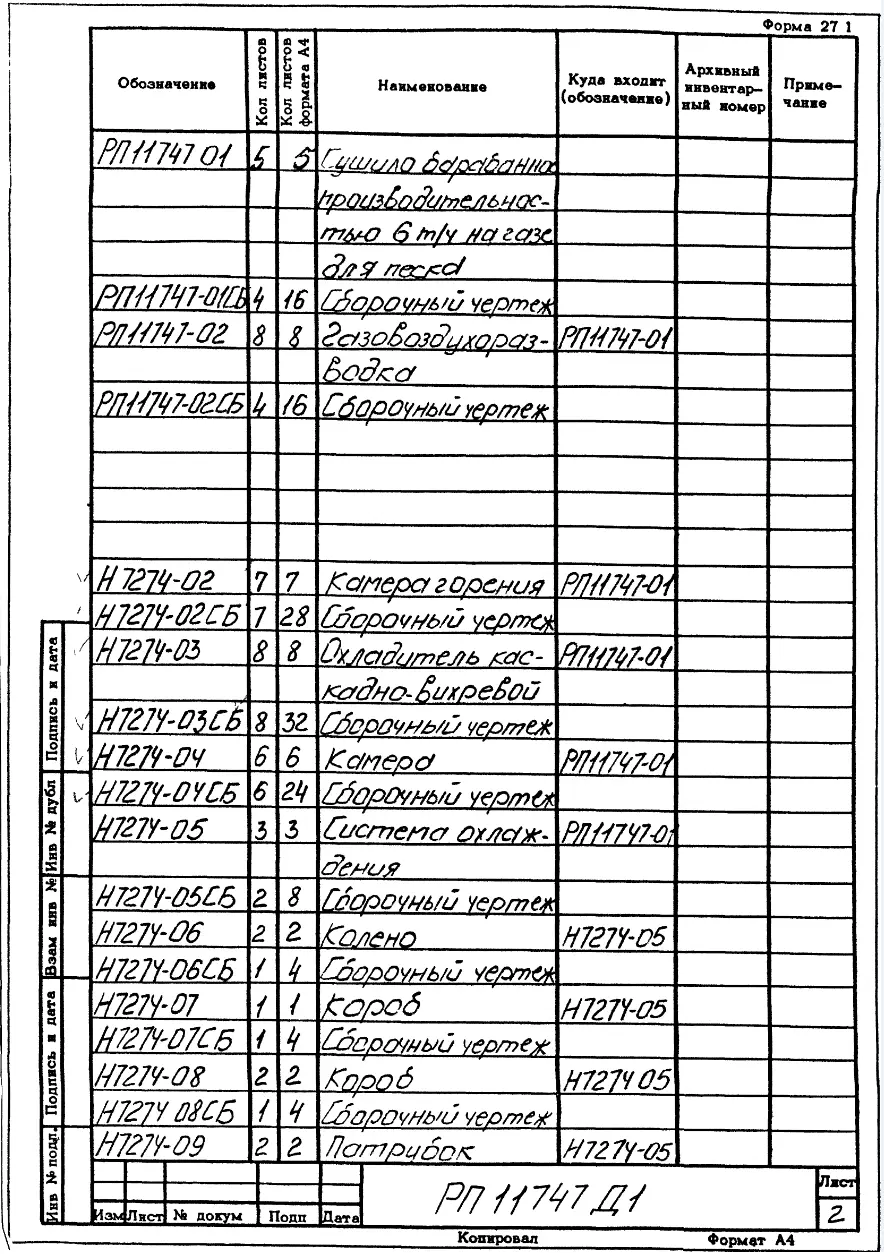 Форма 27 1
Обозначение Кол листов Кол листов формата А4 Наименование Куда входит (обозначение) Архивный инвентар- ный номер Приме- чание
РП11747 01 5 5 Сушило барабанно
производительнос-
тью 6 т/ч на газе
для песка
РП11747-01СБ 4 16 Сборочный чертеж
РП11747-02 8 8 Газовоздухораз- РП11747-01
водка
РП11747-02СБ 4 16 Сборочный чертеж
Н7274-02 7 7 Камера горения РП11747-01
Н7274-02СБ 7 28 Сборочный чертеж
Н7274-03 8 8 Охладитель кас- РП11747-01
кадно-вихревой
Н7274-03СБ 8 32 Сборочный чертеж
Н7274-04 6 6 Камера РП11747-01
Н7274-04СБ 6 24 Сборочный чертеж
Н7274-05 3 3 Система охлаж- РП11747-01
дения
Н7274-05СБ 2 8 Сборочный чертеж
Н7274-06 2 2 Колено Н7274-05
Н7274-06СБ 1 4 Сборочный чертеж
Н7274-07 1 1 Короб Н7274-05
Н7274-07СБ 1 4 Сборочный чертеж
Н7274-08 2 2 Короб Н7274 05
Н7274 08СБ 1 4 Сборочный чертеж
Н7274-09 2 2 Патрубок Н7274-05
Подпись и дата
Инв № дубл
Взам инв №
Подпись и дата
Инв № подл.
Изм Лист № докум Подп Дата
РП 11747 Д1
Лист
2
Копировал Формат А4